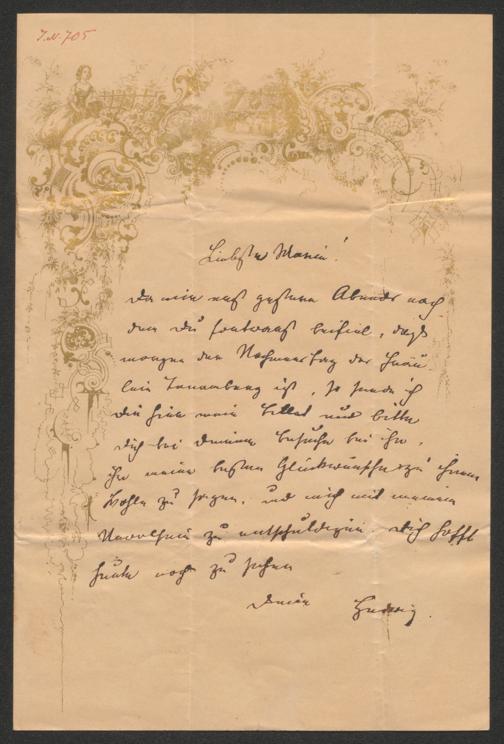 J.N. 705
Liebste Marie!
Da mir erst gestern Abends nach
dem Du fortwarst beifiel, daß
morgen der Nahmenstag der Fräu-
lein Tannenberg ist, so sende ich
Dir hier mein billet und bitte
Dich bei Deinem besuche bei ihr,
ihr meine besten Glückwünsche zu ihrem
Wohle zu sagen, und mich mit meinem
Unwohlsein zu entschuldigen. Dich hofft
heute noch zu sehen
Deine Hedwig.